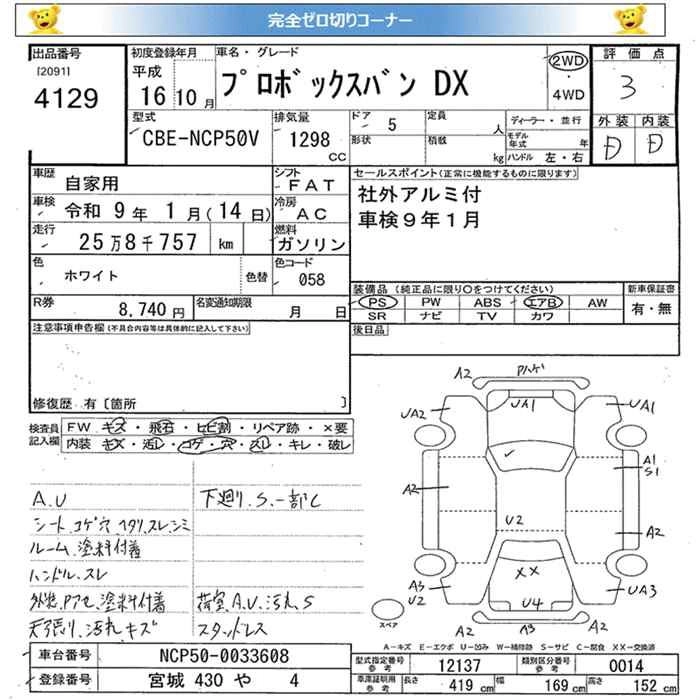 完全ゼロ切りコーナー
出品番号
[2091]
4129
初度登録年月
平成
16 10 月
車名・グレード
プロボックスバン DX
2WD
・
4WD
評価点
3
外装 内装
D D
型式
CBE-NCP50V
排気量
1298
CC
ドア 5
形状
定員 人
積数 kg
ディーラー・並行
モデル年式 年
ハンドル 左・右
車歴
自家用
シフト
FAT
車検
令和 9 年 1 月(14 日)
冷房
AC
走行
25万8千757 km
燃料
ガソリン
色
ホワイト
色替
色コード
058
R券
8,740 円
名変通知期限
月 日
セールスポイント(正常に機能するものに限ります)
社外アルミ付
車検9年1月
装備品 (純正品に限り○をつけてください)
PS PW ABS エアB AW
SR ナビ TV カワ
新車保証書
有・無
後日品
注意事項申告欄(不具合内容等は具体的に記入して下さい)
修復歴 有〔箇所 〕
検査員
記入欄
FW キズ・飛石・ヒビ割・リペア跡・×要
内装 キズ・汚レ・コゲ・穴・スレ・キレ・破レ
A.U
シート.コゲ穴 ヘタリ.スレ.シミ
ルーム.塗料付着
ハンドル.スレ
外装.Pアセ.塗料付着
天張リ.汚れキズ
下廻り.S.一部C
荷室.A.U.汚れ.S
スタッドレス
A2
UA2
UA1
UA1
A1
S1
A2
U2
A2
XX
A3
U2
U4
UA3
A2
A3
A2
スペア
A-キズ E-エクボ U-凹み W-補修跡 S-サビ C-腐食 XX-交換済
車台番号
NCP50-0033608
登録番号
宮城 430 や 4
型式指定番号
参考
12137
類別区分番号
参考
0014
車庫証明用
参考
長さ 419 cm
幅 169 cm
高さ 152 cm